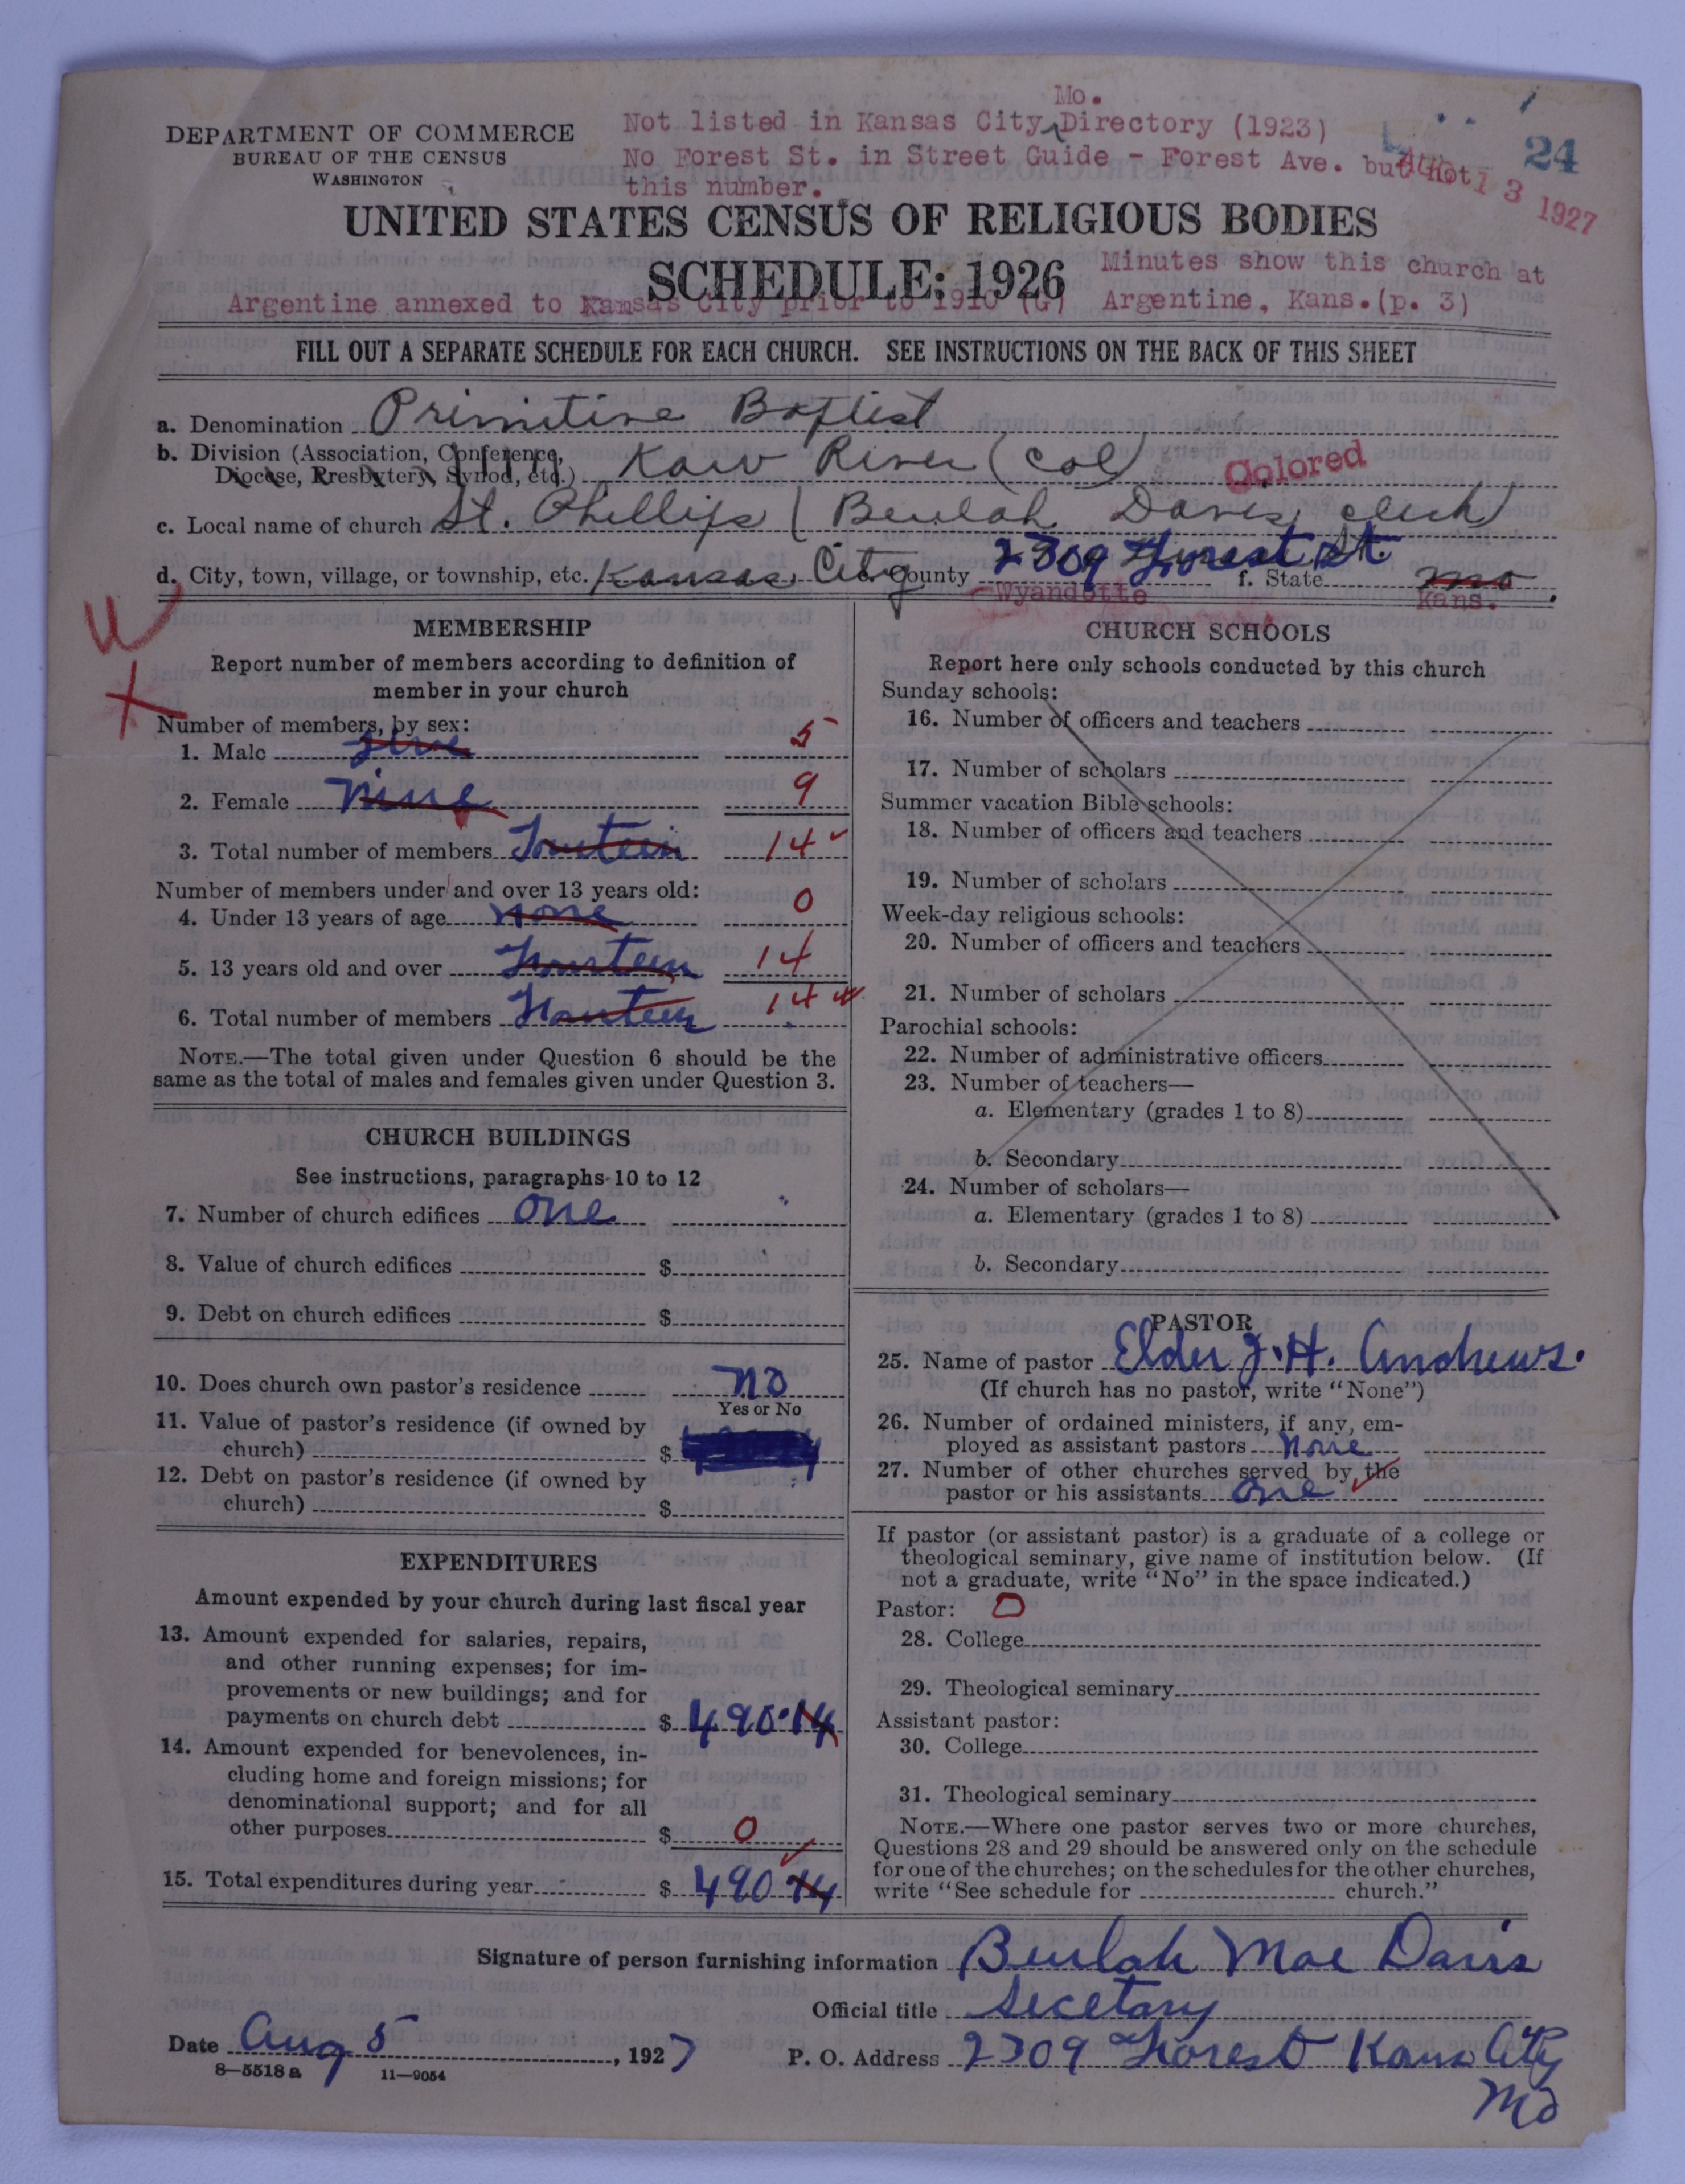 DEPARTMENT OF COMMERCE
BUREAU OF THE CENSUS
WASHINGTON
Mo.
Not listed in Kansas City Directory (1923)
No Forest St. in Street Guide - Forest Ave. but not
this number.
24
AUG 13 1927
UNITED STATES CENSUS OF RELIGIOUS BODIES
SCHEDULE: 1926
Minutes show this church at
Argentine annexed to Kansas City prior to 1910 (G) Argentine, Kans. (p. 3)
FILL OUT A SEPARATE SCHEDULE FOR EACH CHURCH. SEE INSTRUCTIONS ON THE BACK OF THIS SHEET
a. Denomination Primitive Baptist
b. Division (Association, Conference,
Diocese, Presbytery, Synod, etc.) Kaw River (Col) Colored
c. Local name of church St. Phillips (Beulah Davis, clerk)
d. City, town, village, or township, etc. Kansas City e. County 2309 Forest St. f. State Mo
Wyandotte Kans.
MEMBERSHIP
Report number of members according to definition of
member in your church
Number of members, by sex:
1. Male five 5
2. Female Nine 9
3. Total number of members Fourteen 14
Number of members under and over 13 years old:
4. Under 13 years of age none 0
5. 13 years old and over Fourteen 14
6. Total number of members Fourteen 14
NOTE.—The total given under Question 6 should be the
same as the total of males and females given under Question 3.
CHURCH BUILDINGS
See instructions, paragraphs 10 to 12
7. Number of church edifices one
8. Value of church edifices $
9. Debt on church edifices $
10. Does church own pastor's residence no
Yes or No
11. Value of pastor's residence (if owned by
church) $
12. Debt on pastor's residence (if owned by
church) $
EXPENDITURES
Amount expended by your church during last fiscal year
13. Amount expended for salaries, repairs,
and other running expenses; for im-
provements or new buildings; and for
payments on church debt $ 490.14
14. Amount expended for benevolences, in-
cluding home and foreign missions; for
denominational support; and for all
other purposes $ 0
15. Total expenditures during year $ 490 14
CHURCH SCHOOLS
Report here only schools conducted by this church
Sunday schools:
16. Number of officers and teachers
17. Number of scholars
Summer vacation Bible schools:
18. Number of officers and teachers
19. Number of scholars
Week-day religious schools:
20. Number of officers and teachers
21. Number of scholars
Parochial schools:
22. Number of administrative officers
23. Number of teachers—
a. Elementary (grades 1 to 8)
b. Secondary
24. Number of scholars—
a. Elementary (grades 1 to 8)
b. Secondary
PASTOR
25. Name of pastor Elder J. H. Andrews.
(If church has no pastor, write "None")
26. Number of ordained ministers, if any, em-
ployed as assistant pastors none
27. Number of other churches served by the
pastor or his assistants one
If pastor (or assistant pastor) is a graduate of a college or
theological seminary, give name of institution below. (If
not a graduate, write "No" in the space indicated.)
Pastor: 0
28. College
29. Theological seminary
Assistant pastor:
30. College
31. Theological seminary
NOTE.—Where one pastor serves two or more churches,
Questions 28 and 29 should be answered only on the schedule
for one of the churches; on the schedules for the other churches,
write "See schedule for church."
Signature of person furnishing information Beulah Mae Davis
Official title Secetary
Date Aug 5, 1927 P. O. Address 2309 Forest Kans City
Mo
8—5518a 11—9054